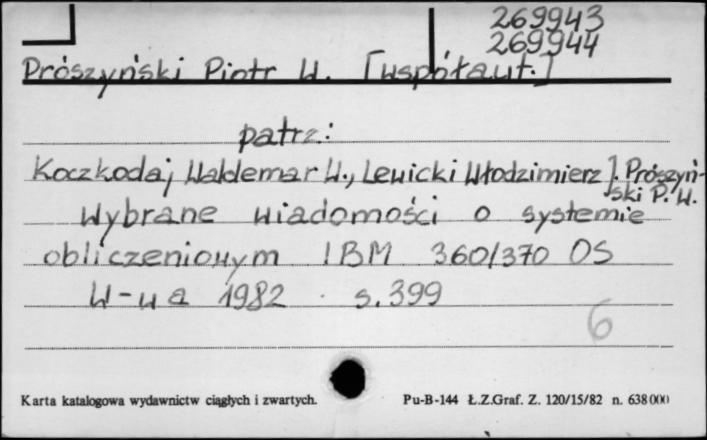 269943
269944
Prószyński Piotr W. [współaut.]
patrz:
Koczkodaj Waldemar W., Lewicki Włodzimierz]. Prószyń-
ski P. W.
Wybrane wiadomości o systemie
obliczeniowym IBM 360/370 OS
W-wa 1982 s. 399
6
Karta katalogowa wydawnictw ciągłych i zwartych. Pu-B-144 Ł.Z.Graf. Z. 120/15/82 n. 638000